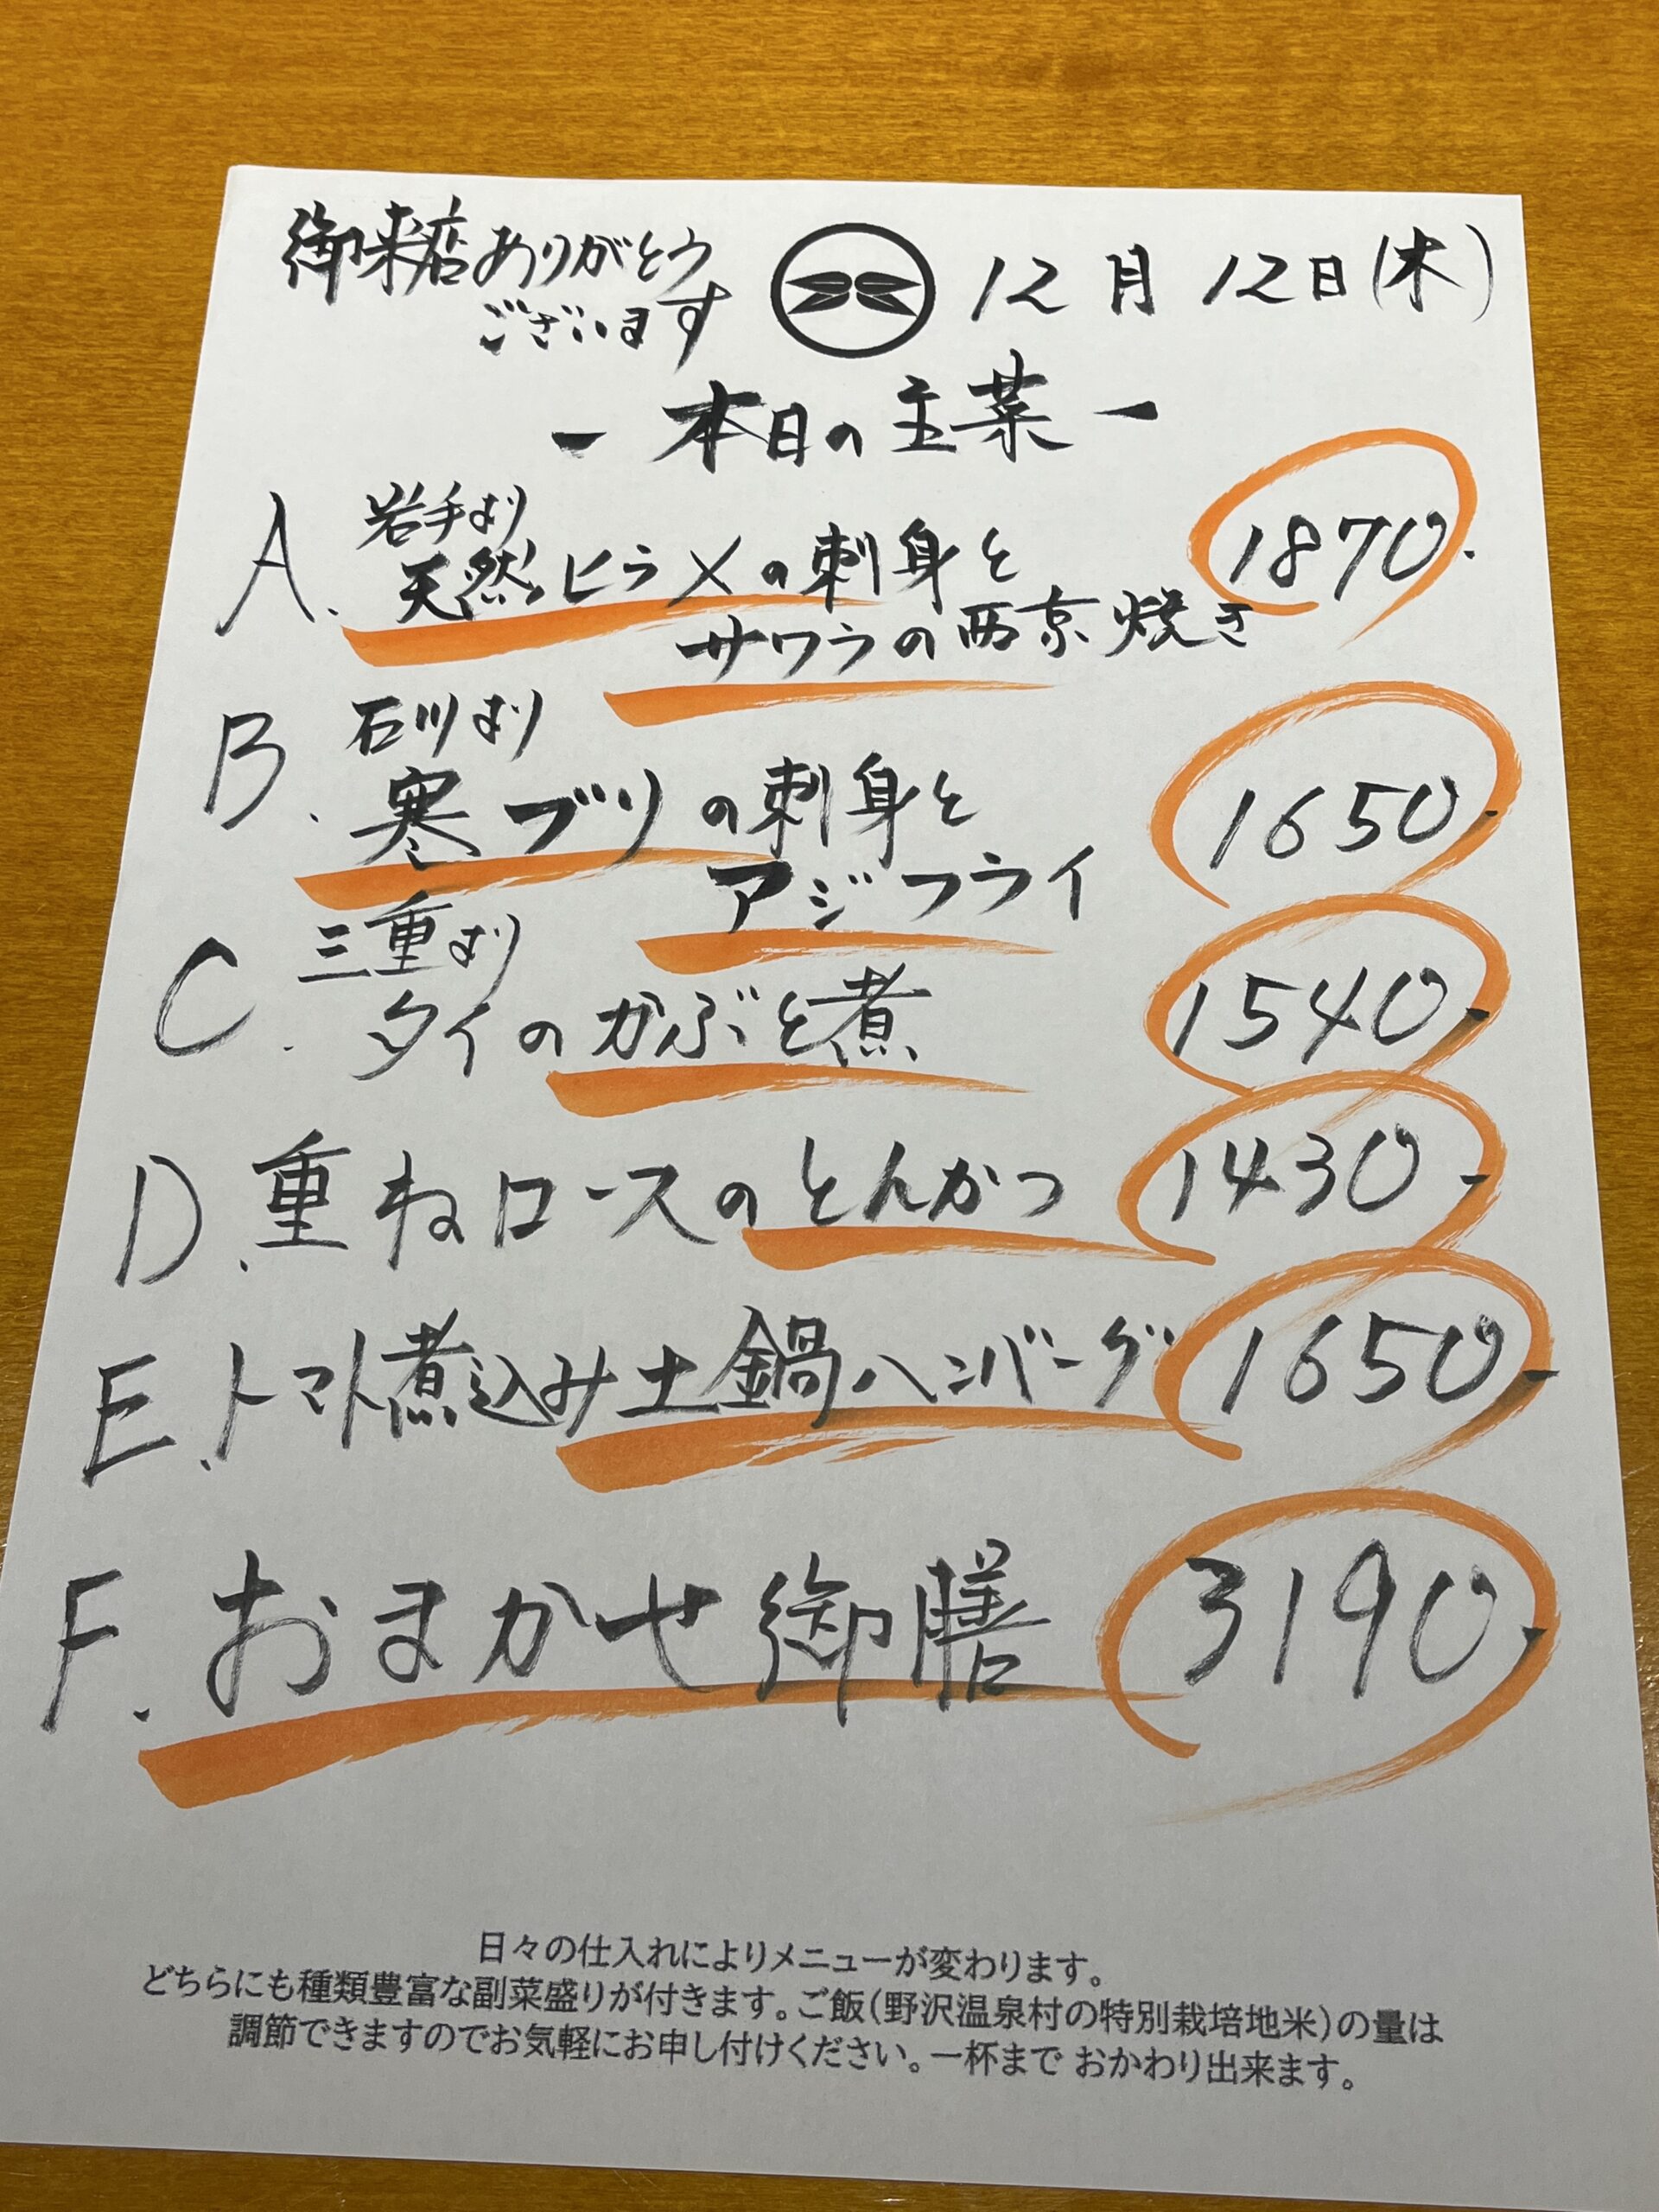 御来店ありがとう
ございます
12月12日(木)
- 本日の主菜 -
A. 岩手より
天然ヒラメの刺身と
サワラの西京焼き
1870.
B. 石川より
寒ブリの刺身と
アジフライ
1650.
C. 三重より
タイのかぶと煮 1540.
D. 重ねロースのとんかつ 1430.
E. トマト煮込み土鍋ハンバーグ 1650.
F. おまかせ御膳 3190.
日々の仕入れによりメニューが変わります。
どちらにも種類豊富な副菜盛りが付きます。ご飯(野沢温泉村の特別栽培地米)の量は
調節できますのでお気軽にお申し付けください。一杯まで おかわり出来ます。